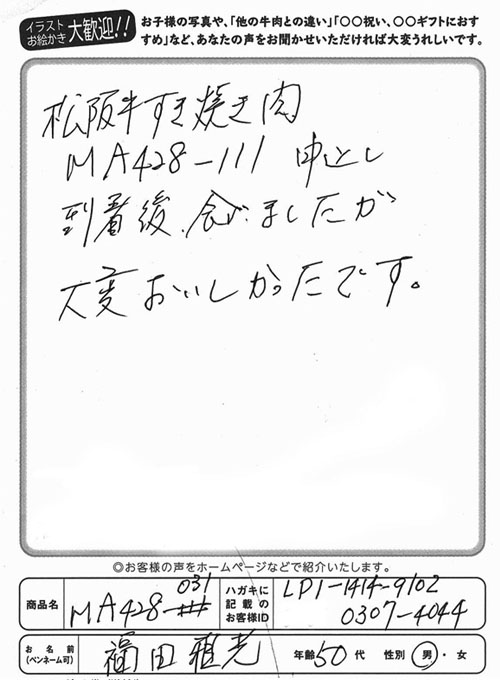 イラスト
お絵かき 大歓迎!!
お子様の写真や、「他の牛肉との違い」「○○祝い、○○ギフトにおす
すめ」など、あなたの声をお聞かせいただければ大変うれしいです。
松阪牛すき焼き肉
MA428-111 申込し
到着後、食べましたが
大変おいしかったです。
◎お客様の声をホームページなどで紹介いたします。
商品名 MA428-031
ハガキに記載のお客様ID LP1-1414-9102
0307-4044
お名前(ペンネーム可) 福田雅光 年齢50代 性別 男・女